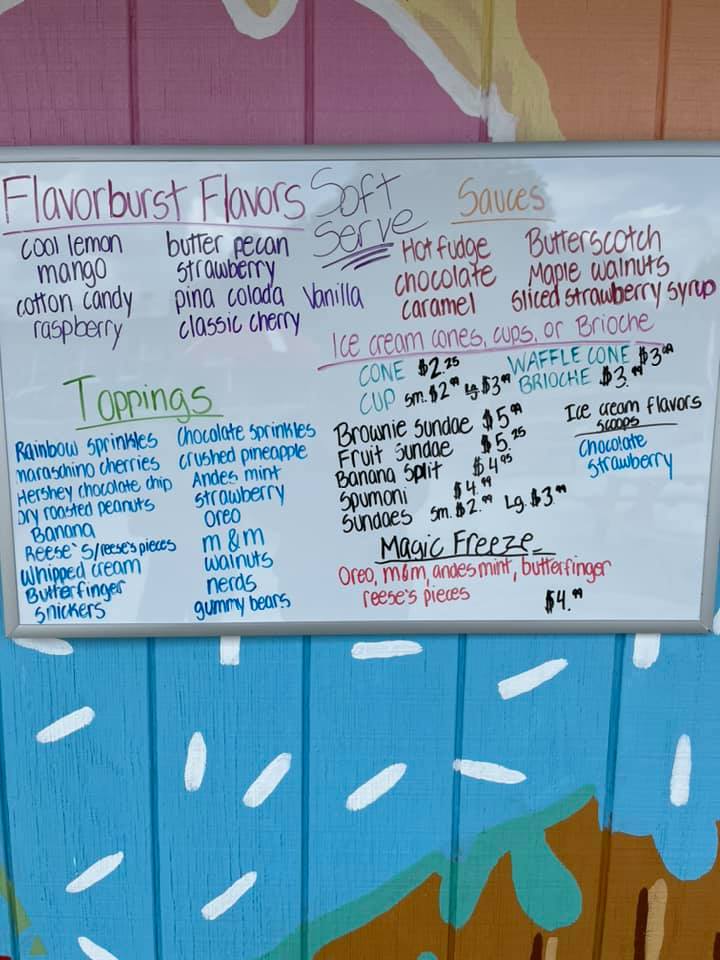 Flavorburst Flavors
cool lemon butter pecan
mango strawberry
cotton candy pina colada
raspberry classic cherry
Soft
Serve
Vanilla
Sauces
Hot fudge Butterscotch
chocolate Maple walnuts
caramel sliced strawberry syrup
Ice cream cones, cups, or Brioche
CONE $2.25 WAFFLE CONE $3.99
CUP sm. $2.99 Lg. $3.99 BRIOCHE $3.99
Brownie Sundae $5.99
Fruit Sundae $5.25
Banana Split $4.95
Spumoni $4.99
Sundaes sm. $2.99 Lg. $3.99
Ice cream flavors
scoops
Chocolate
Strawberry
Toppings
Rainbow sprinkles Chocolate sprinkles
maraschino cherries crushed pineapple
Hershey chocolate chip Andes mint
Dry roasted peanuts strawberry
Banana Oreo
Reese's/reese's pieces m&m
Whipped cream walnuts
Butterfinger nerds
Snickers gummy bears
Magic Freeze
Oreo, m&m, andes mint, butterfinger
reese's pieces $4.99